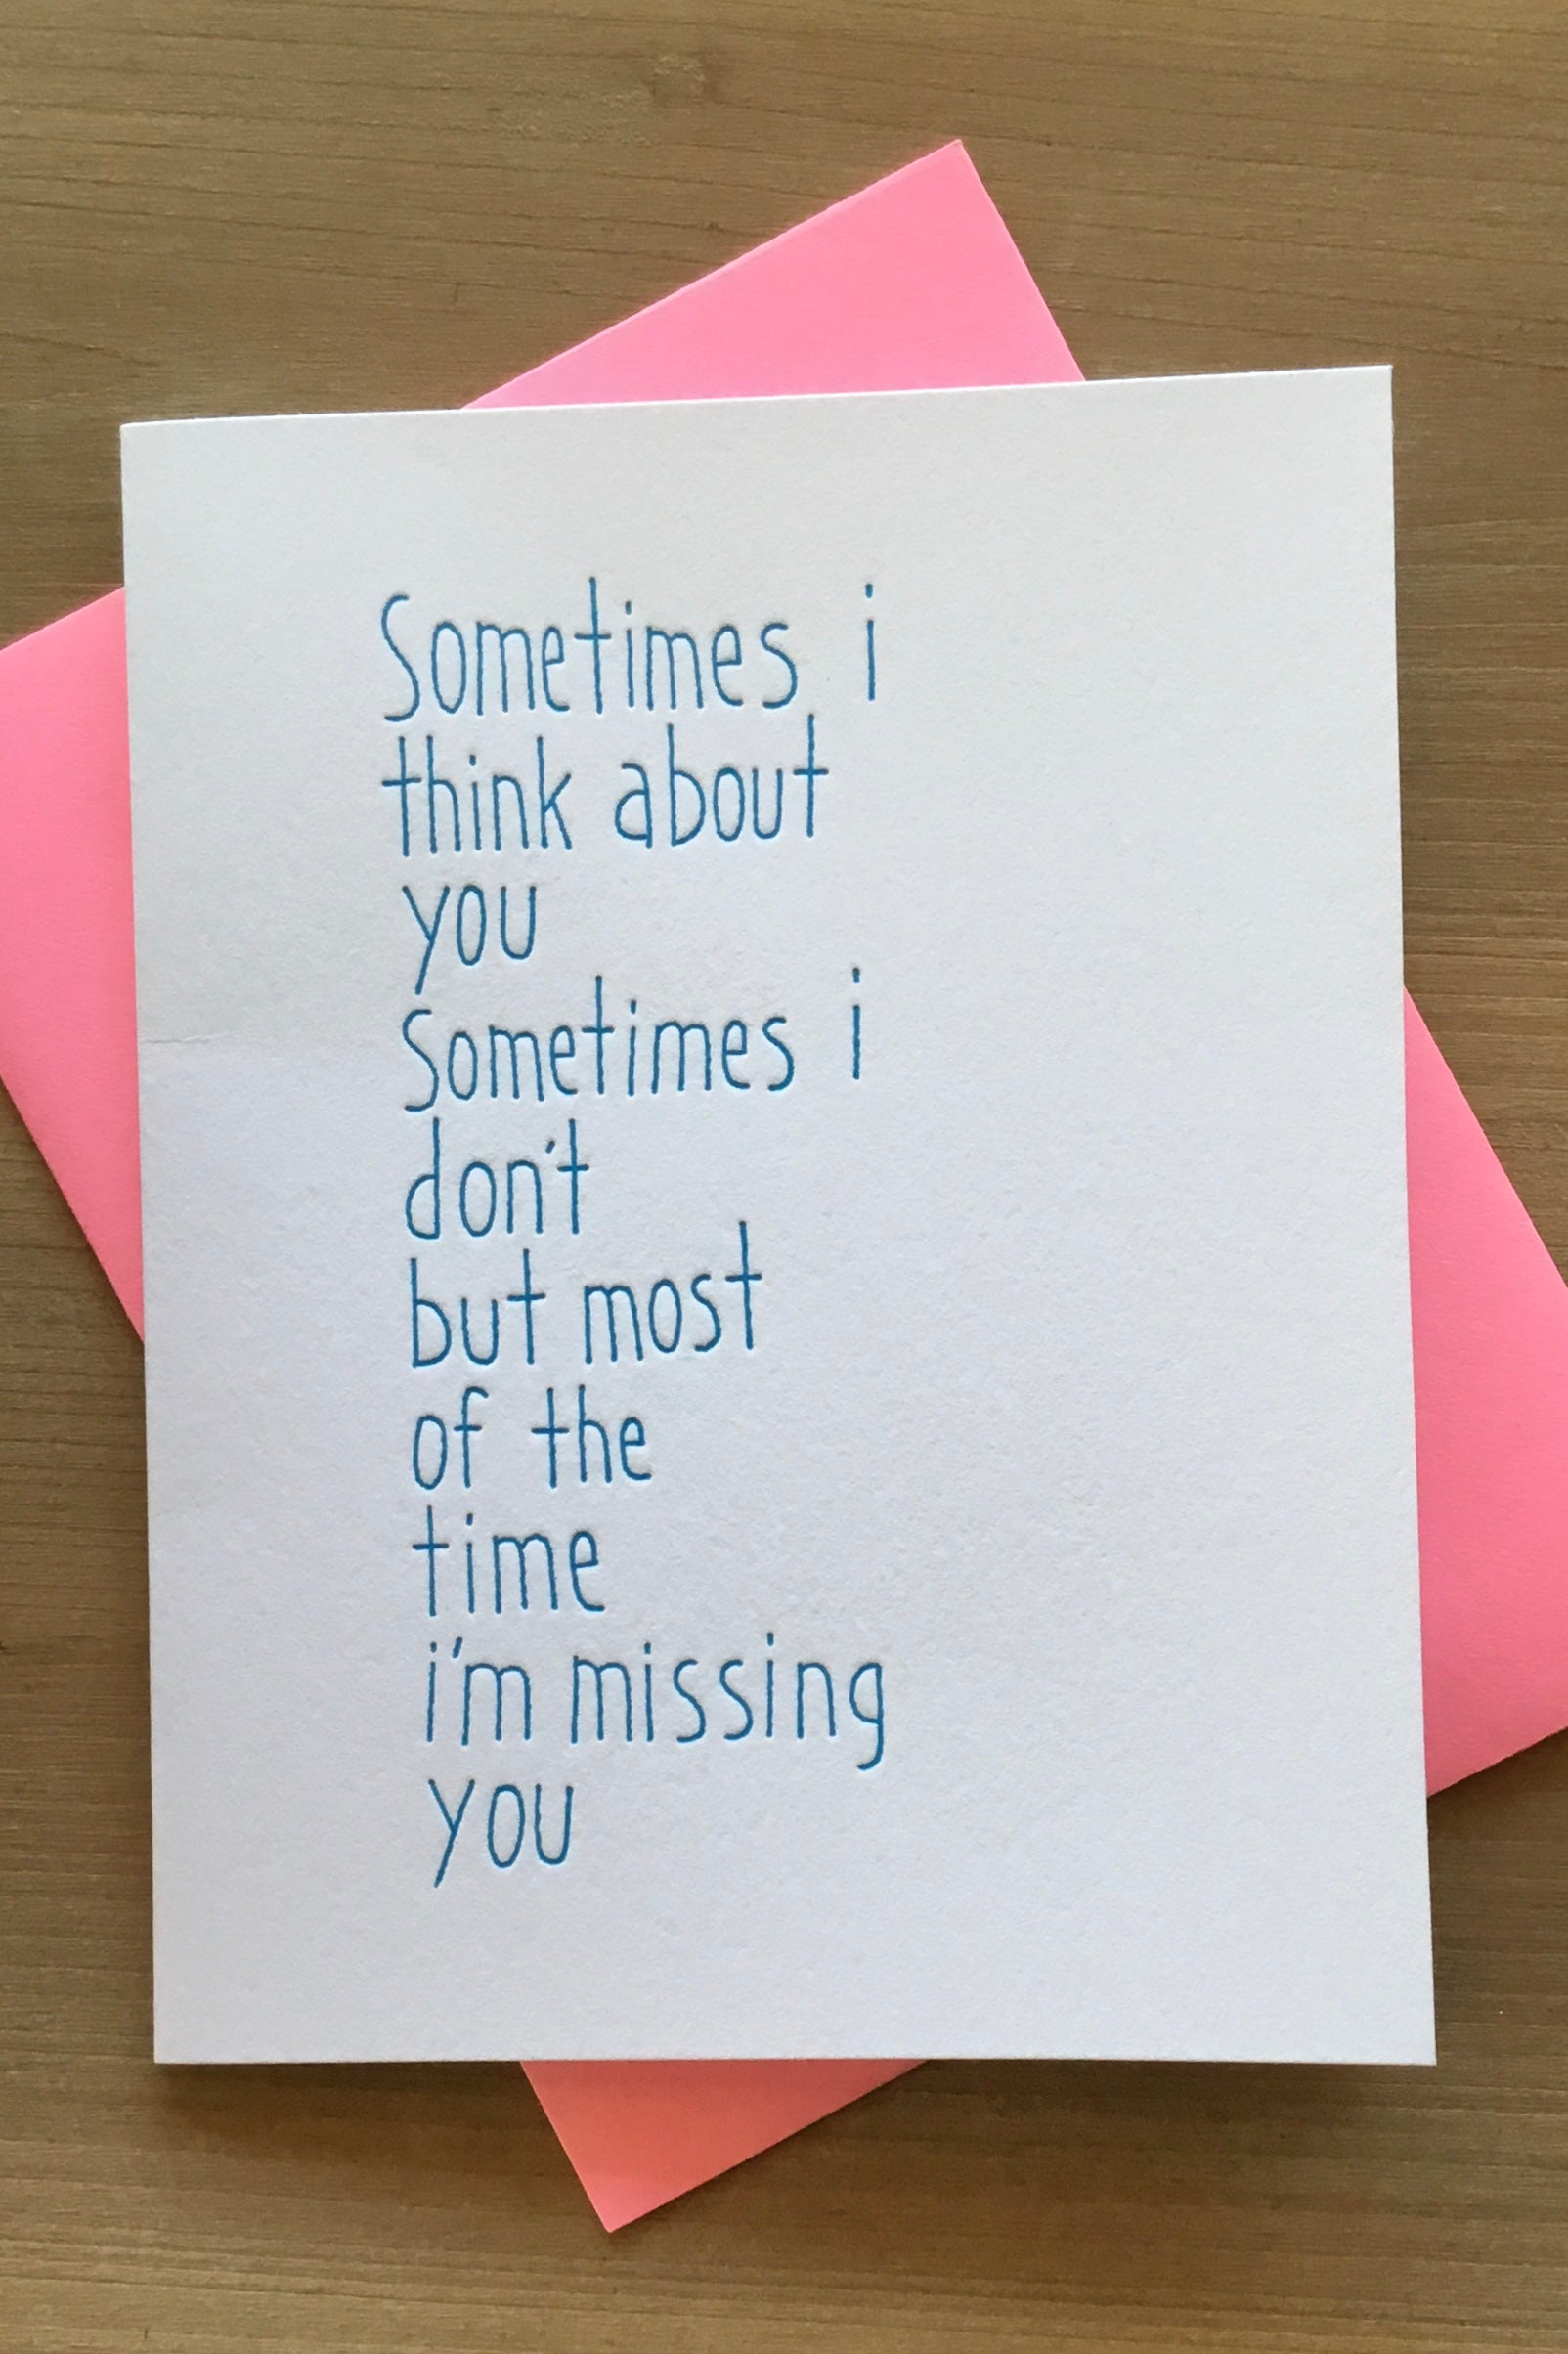 Sometimes i
think about
you
Sometimes i
don't
but most
of the
time
i'm missing
you